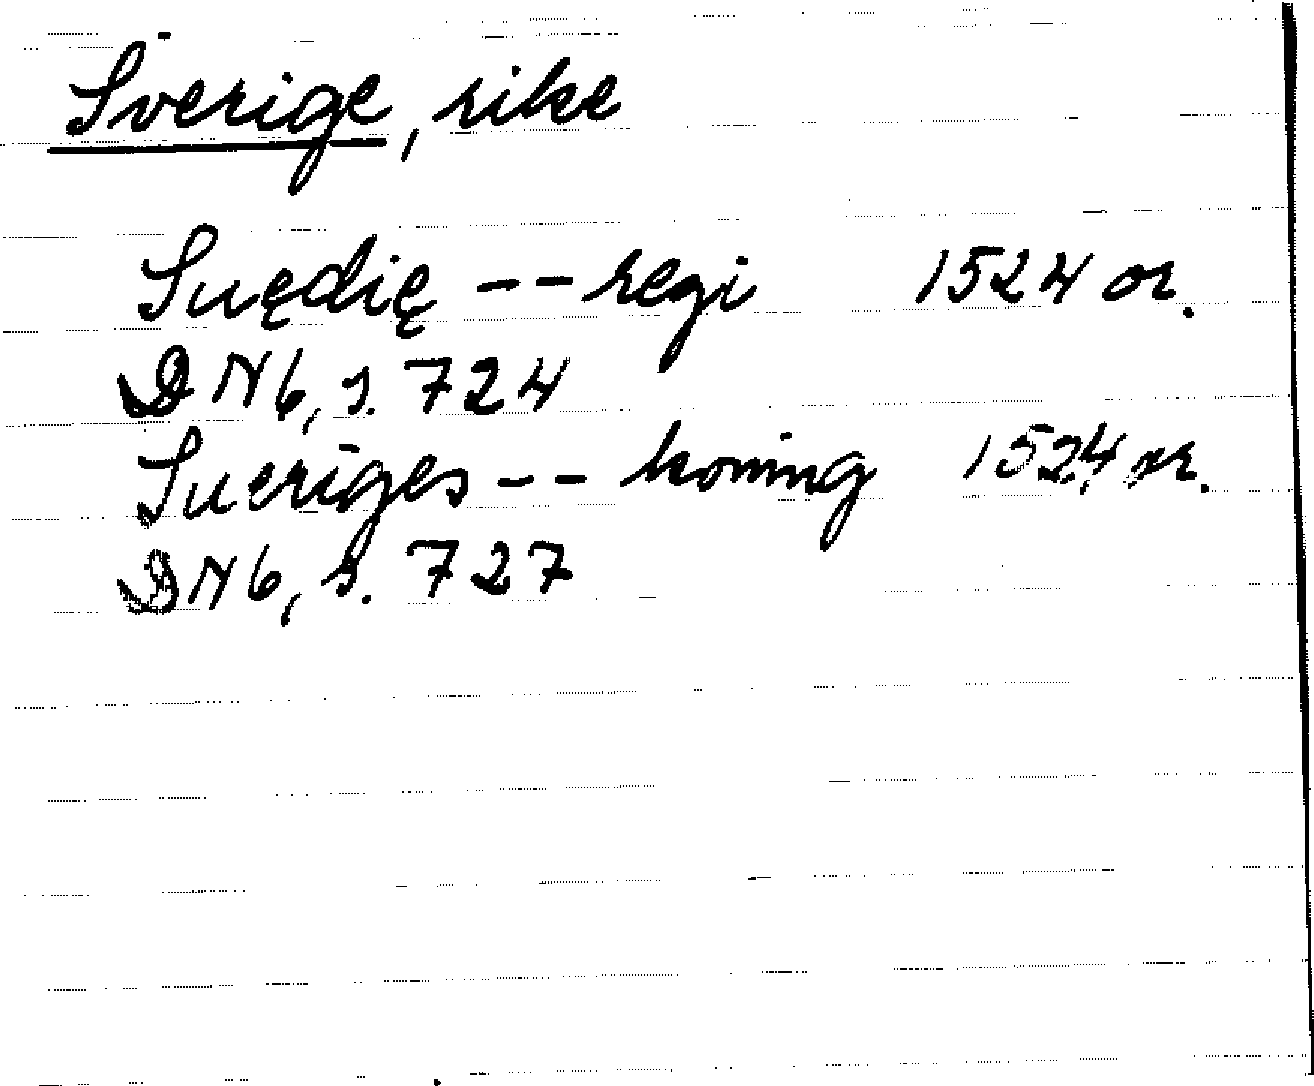 Sverige, rike
Suędię -- regi 1524 or.
DN 6, s. 724
Sueriges -- koning 1524 or.
DN 6, s. 727